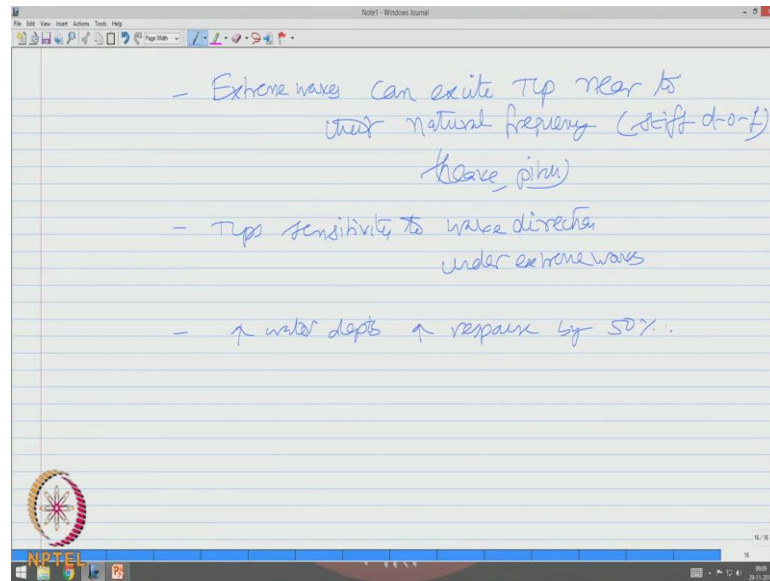 Note1 - Windows Journal
File Edit View Insert Actions Tools Help
Page Width
- Extreme waves can excite TLP near to
their natural frequency (stiff d-o-f)
(heave, pitch)
- TLPs sensitivity to wave direction
under extreme waves
- ↑ water depth ↑ response by 50%.
16/16
16
NPTEL